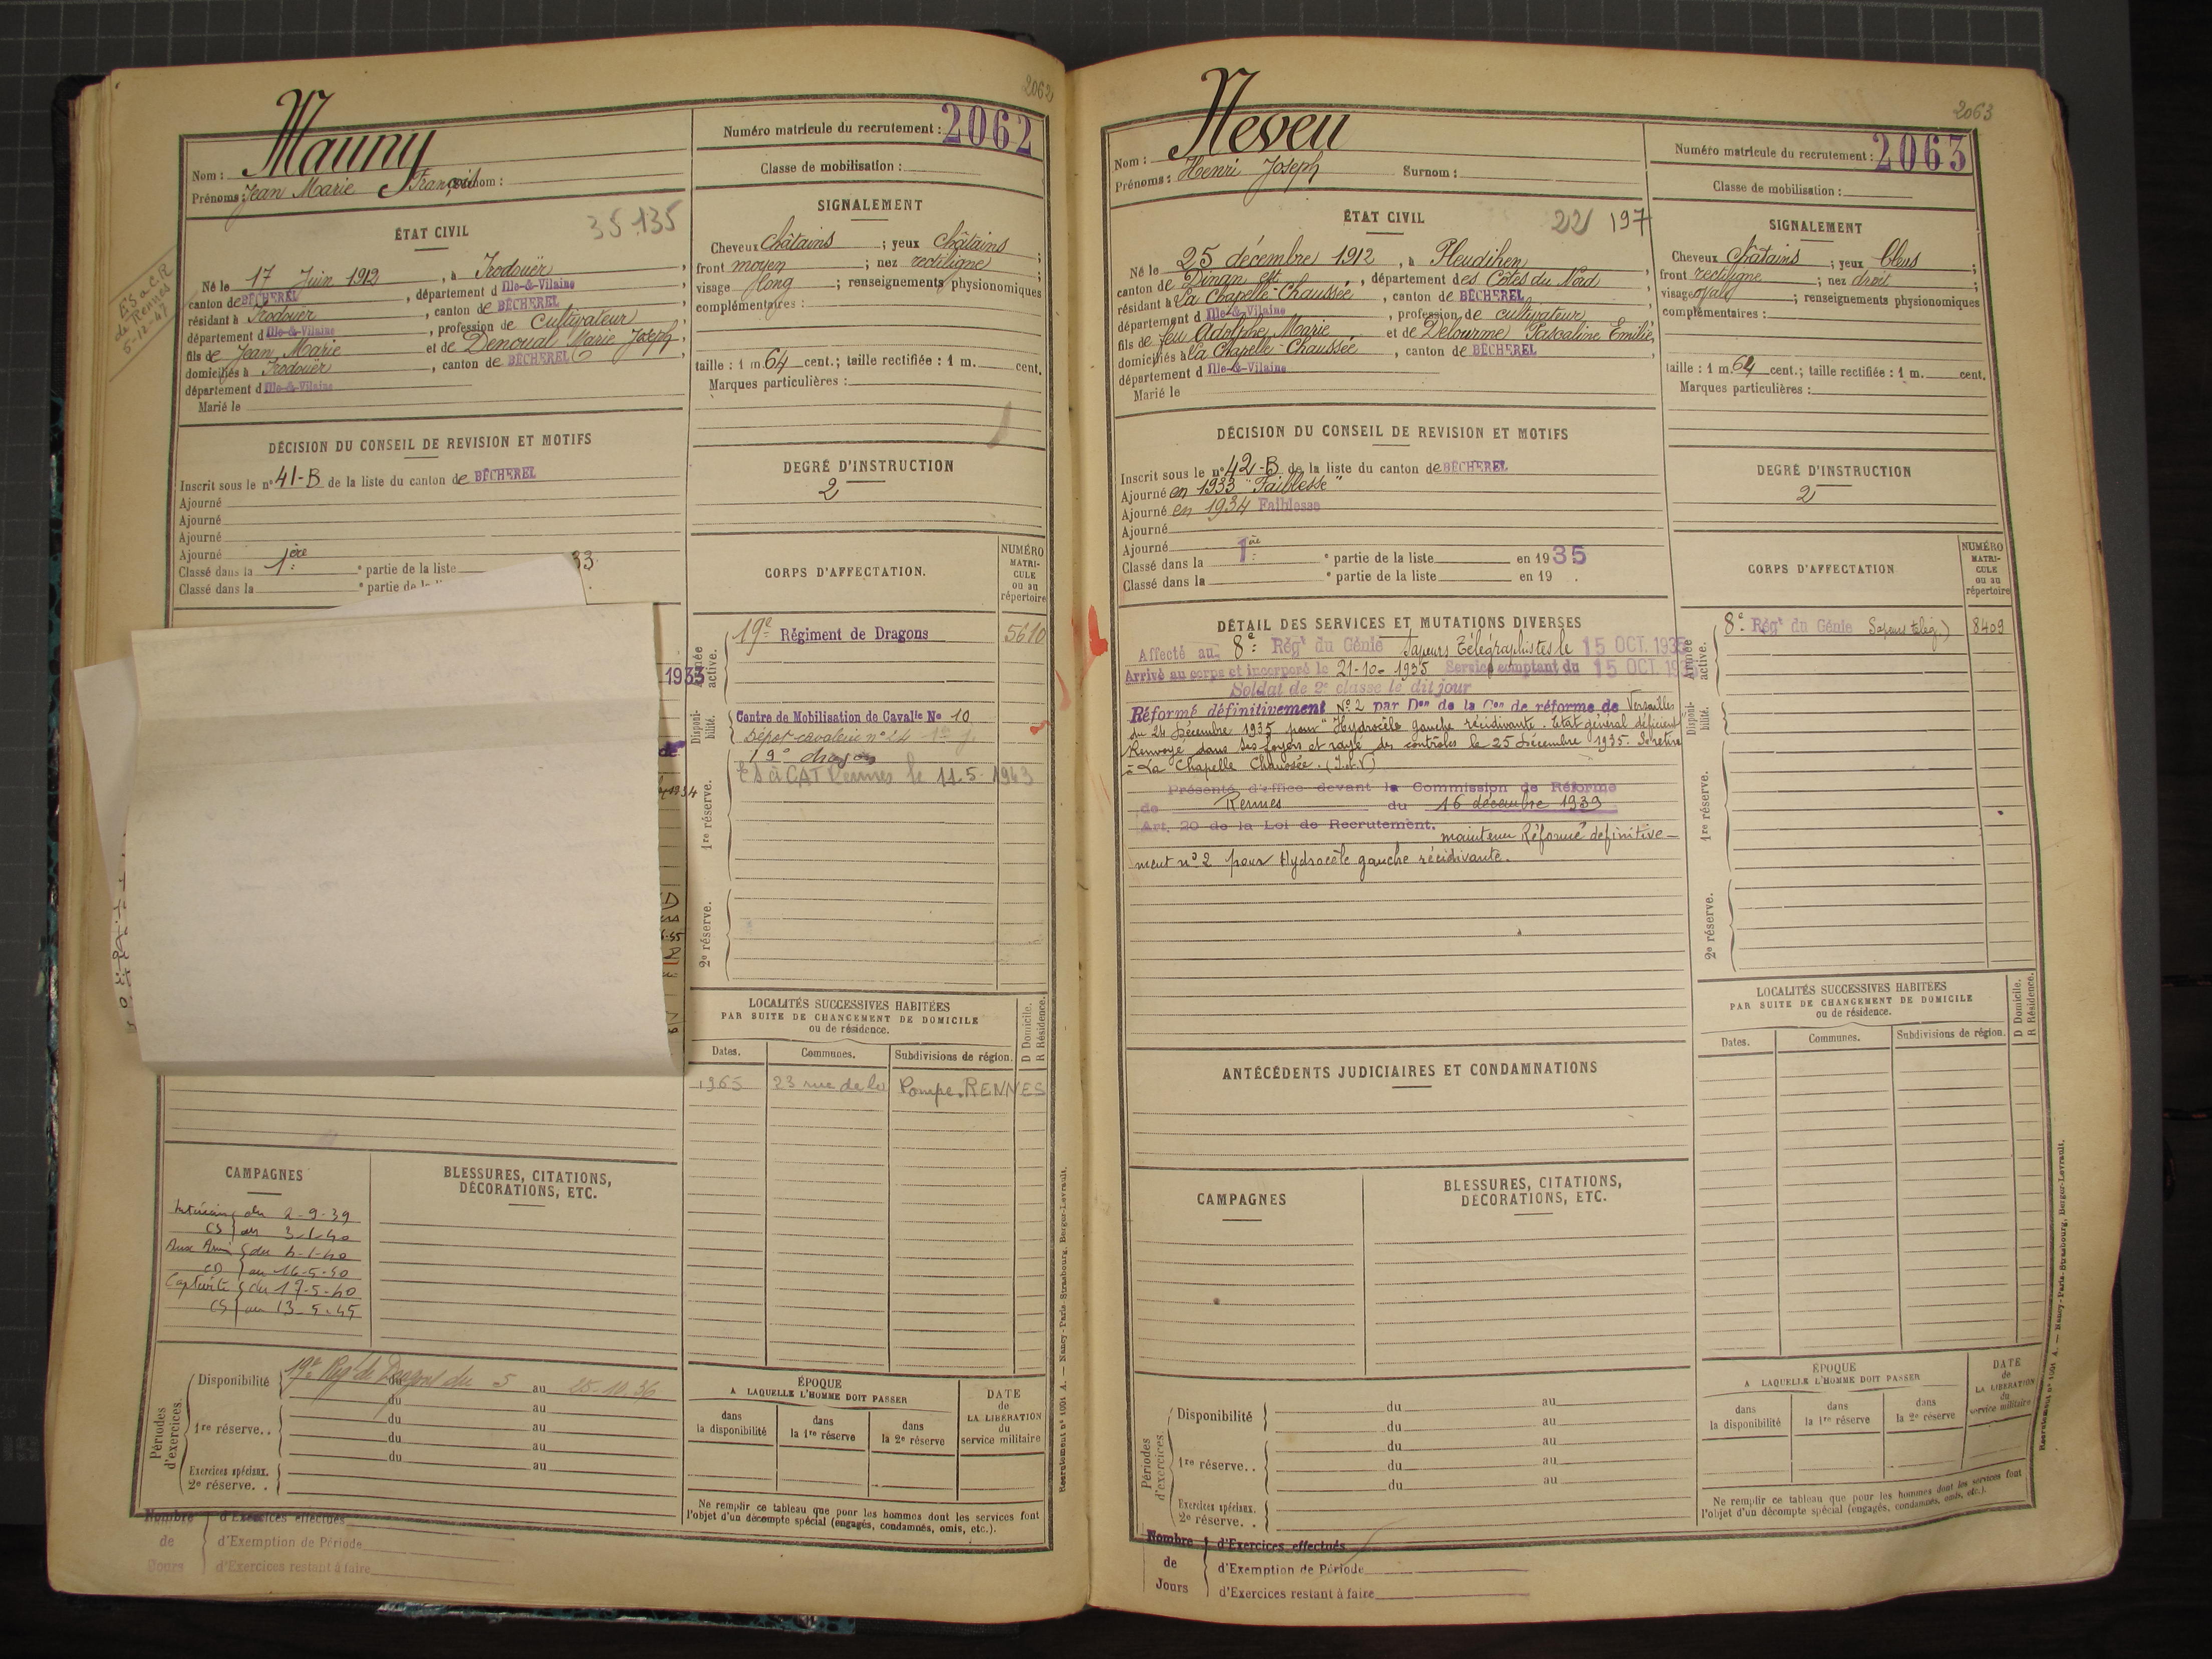 2062
Mauny
Nom :
Prénoms : Jean Marie François Surnom :
Numéro matricule du recrutement : 2062
Classe de mobilisation :
ÉTAT CIVIL
35.135
Né le 17 Juin 1912, à Irodouër,
canton de BÉCHEREL, département d Ille-&-Vilaine
résidant à Irodouër, canton de BÉCHEREL
département d Ille-&-Vilaine, profession de Cultivateur
fils de Jean Marie et de Denoual Marie Joseph,
domiciliés à Irodouër, canton de BÉCHEREL,
département d Ille-&-Vilaine
Marié le
E.S à C.R
de Rennes
5-12-47
SIGNALEMENT
Cheveux Châtains ; yeux Châtains ;
front moyen ; nez rectiligne ;
visage long ; renseignements physionomiques
complémentaires :
taille : 1 m. 64 cent. ; taille rectifiée : 1 m. cent.
Marques particulières :
DÉCISION DU CONSEIL DE REVISION ET MOTIFS
Inscrit sous le n° 41-B de la liste du canton de BÉCHEREL
Ajourné
Ajourné
Ajourné
Ajourné
Classé dans la 1ère e partie de la liste 33.
Classé dans la e partie de la
DEGRÉ D'INSTRUCTION
2
CORPS D'AFFECTATION.
NUMÉRO
MATRI-
CULE
ou au
répertoire
1933
Armée active.
19e Régiment de Dragons 5610
Disponi-bilité.
Centre de Mobilisation de Cavalie No 10
Dépot cavalerie n° 24
19e dragons
ES à CAT Rennes le 11.5.1943
1re réserve.
2e réserve.
LOCALITÉS SUCCESSIVES HABITÉES
PAR SUITE DE CHANGEMENT DE DOMICILE
ou de résidence.
D Domicile.
R Résidence.
Dates. Communes. Subdivisions de région.
1965 23 rue de la Pompe. RENNES
CAMPAGNES
BLESSURES, CITATIONS,
DÉCORATIONS, ETC.
Intérieur du 2-9-39
CS au 3-1-40
Aux Armées du 6-1-40
CD au 16-5-40
Captivité du 17-5-40
CS au 13-5-45
Périodes d'exercices.
Disponibilité 19e Regt de Dragons du 5 au 25-10-36
du au
1re réserve. . du au
du au
du au
Exercices spéciaux.
2e réserve. .
ÉPOQUE
A LAQUELLE L'HOMME DOIT PASSER
dans la disponibilité
dans la 1re réserve
dans la 2e réserve
DATE
de
LA LIBÉRATION
du
service militaire
Ne remplir ce tableau que pour les hommes dont les services font
l'objet d'un décompte spécial (engagés, condamnés, omis, etc.).
Recrutement n° 1001 A. — Nancy-Paris-Strasbourg, Berger-Levrault.
Nombre de Jours
d'Exercices effectués
d'Exemption de Période
d'Exercices restant à faire
2063
Neveu
Nom :
Prénoms : Henri Joseph Surnom :
Numéro matricule du recrutement : 2063
Classe de mobilisation :
ÉTAT CIVIL
22 197
Né le 25 décembre 1912, à Pleudihen
canton de Dinan Est, département des Côtes du Nord
résidant à La Chapelle-Chaussée, canton de BÉCHEREL
département d Ille-&-Vilaine, profession de cultivateur
fils de feu Adolphe Marie et de Delourme Pascaline Emilie,
domiciliés à La Chapelle-Chaussée, canton de BÉCHEREL,
département d Ille-&-Vilaine
Marié le
SIGNALEMENT
Cheveux Châtains ; yeux bleus ;
front rectiligne ; nez droit ;
visage ovale ; renseignements physionomiques
complémentaires :
taille : 1 m. 64 cent. ; taille rectifiée : 1 m. cent.
Marques particulières :
DÉCISION DU CONSEIL DE REVISION ET MOTIFS
Inscrit sous le n° 42-B de la liste du canton de BÉCHEREL
Ajourné en 1933 "Faiblesse"
Ajourné en 1934 Faiblesse
Ajourné
Ajourné
Classé dans la 1ère e partie de la liste en 1935
Classé dans la e partie de la liste en 19 .
DEGRÉ D'INSTRUCTION
2
DÉTAIL DES SERVICES ET MUTATIONS DIVERSES
Affecté au 8e Régt du Génie Sapeurs Télégraphistes le 15 OCT. 1935
Arrivé au corps et incorporé le 21-10-1935 Service comptant du 15 OCT. 19
Soldat de 2e classe le dit jour
Réformé définitivement No 2 par Don de la Con de réforme de Versailles
du 24 Décembre 1935 pour "Hydrocèle gauche récidivante. Etat général déficient"
Renvoyé dans ses foyers et rayé des contrôles le 25 Décembre 1935. Se retire
à La Chapelle Chaussée. (I.et.V)
Présenté d'office devant la Commission de Réforme
de Rennes du 16 décembre 1939
Art. 20 de la Loi de Recrutement. maintenu Réformé définitive-
ment n°2 pour Hydrocèle gauche récidivante.
CORPS D'AFFECTATION
NUMÉRO
MATRI-
CULE
ou au
répertoire
Armée active.
8e Régt du Génie Sapeurs télég.) 8409
Disponi-bilité.
1re réserve.
2e réserve.
ANTÉCÉDENTS JUDICIAIRES ET CONDAMNATIONS
LOCALITÉS SUCCESSIVES HABITÉES
PAR SUITE DE CHANGEMENT DE DOMICILE
ou de résidence.
D Domicile.
R Résidence.
Dates. Communes. Subdivisions de région.
CAMPAGNES
BLESSURES, CITATIONS,
DÉCORATIONS, ETC.
Périodes d'exercices.
Disponibilité du au
du au
1re réserve. . du au
du au
du au
Exercices spéciaux.
2e réserve. .
ÉPOQUE
A LAQUELLE L'HOMME DOIT PASSER
dans la disponibilité
dans la 1re réserve
dans la 2e réserve
DATE
de
LA LIBÉRATION
du
service militaire
Ne remplir ce tableau que pour les hommes dont les services font
l'objet d'un décompte spécial (engagés, condamnés, omis, etc.).
Recrutement n° 1001 A. — Nancy-Paris-Strasbourg, Berger-Levrault.
Nombre de Jours
d'Exercices effectués
d'Exemption de Période
d'Exercices restant à faire